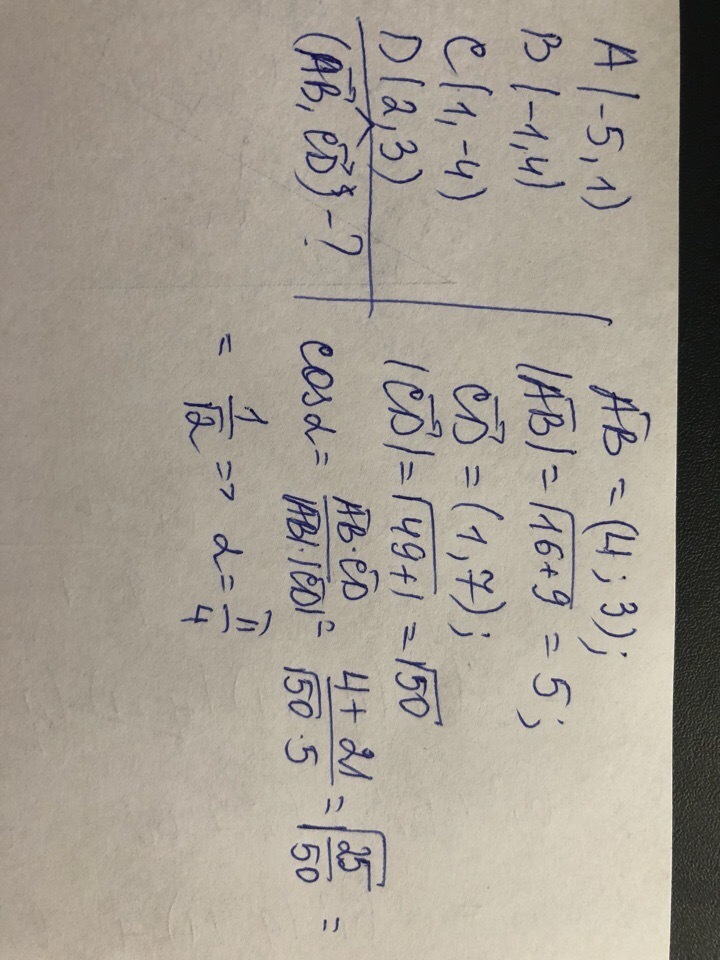 A(-5,1)
B(-1,4)
C(1,-4)
D(2,3)
(AB, CD) - ?
AB = (4; 3);
|AB| = √16+9 = 5;
CD = (1,7);
|CD| = √49+1 = √50
cos α = AB·CD / |AB|·|CD| = 4+21 / √50·5 = √25/50 =
= 1/√2 => α = π/4